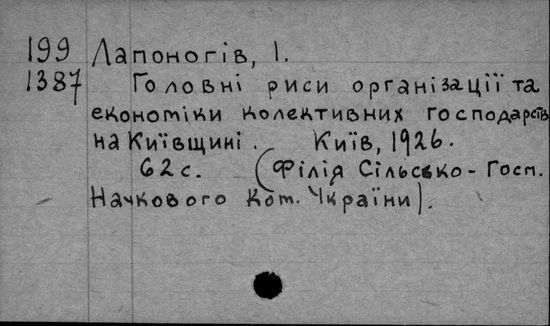 199 Лапоногів, І.
1387 Головні риси організації та
економіки колективних господарств
на Київщині. Київ, 1926.
62 с. (Філія Сільсько-Госп.
Начкового Ком. України).